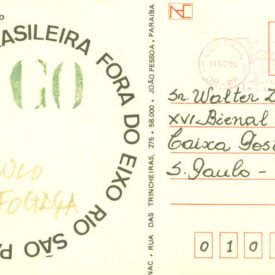 BRASILEIRA FORA DO EIXO RIO SÃO PA
GO
FOGAÇA
NAC • RUA DAS TRINCHEIRAS, 275 • 58.000 • JOÃO PESSOA, PARAÍBA
Sr. Walter Z
XVI Bienal
Caixa Pos
S. Paulo -
0 1 0